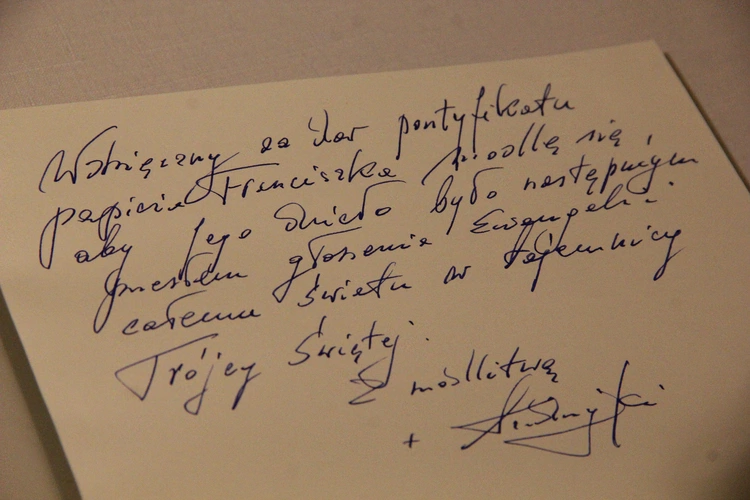 Wdzięczny za dar pontyfikatu
papieża Franciszka modlę się,
aby Jego dzieło było następnym
głoszenia Ewangelii
całemu światu w tajemnicy
Trójcy Świętej.
Z modlitwą
+